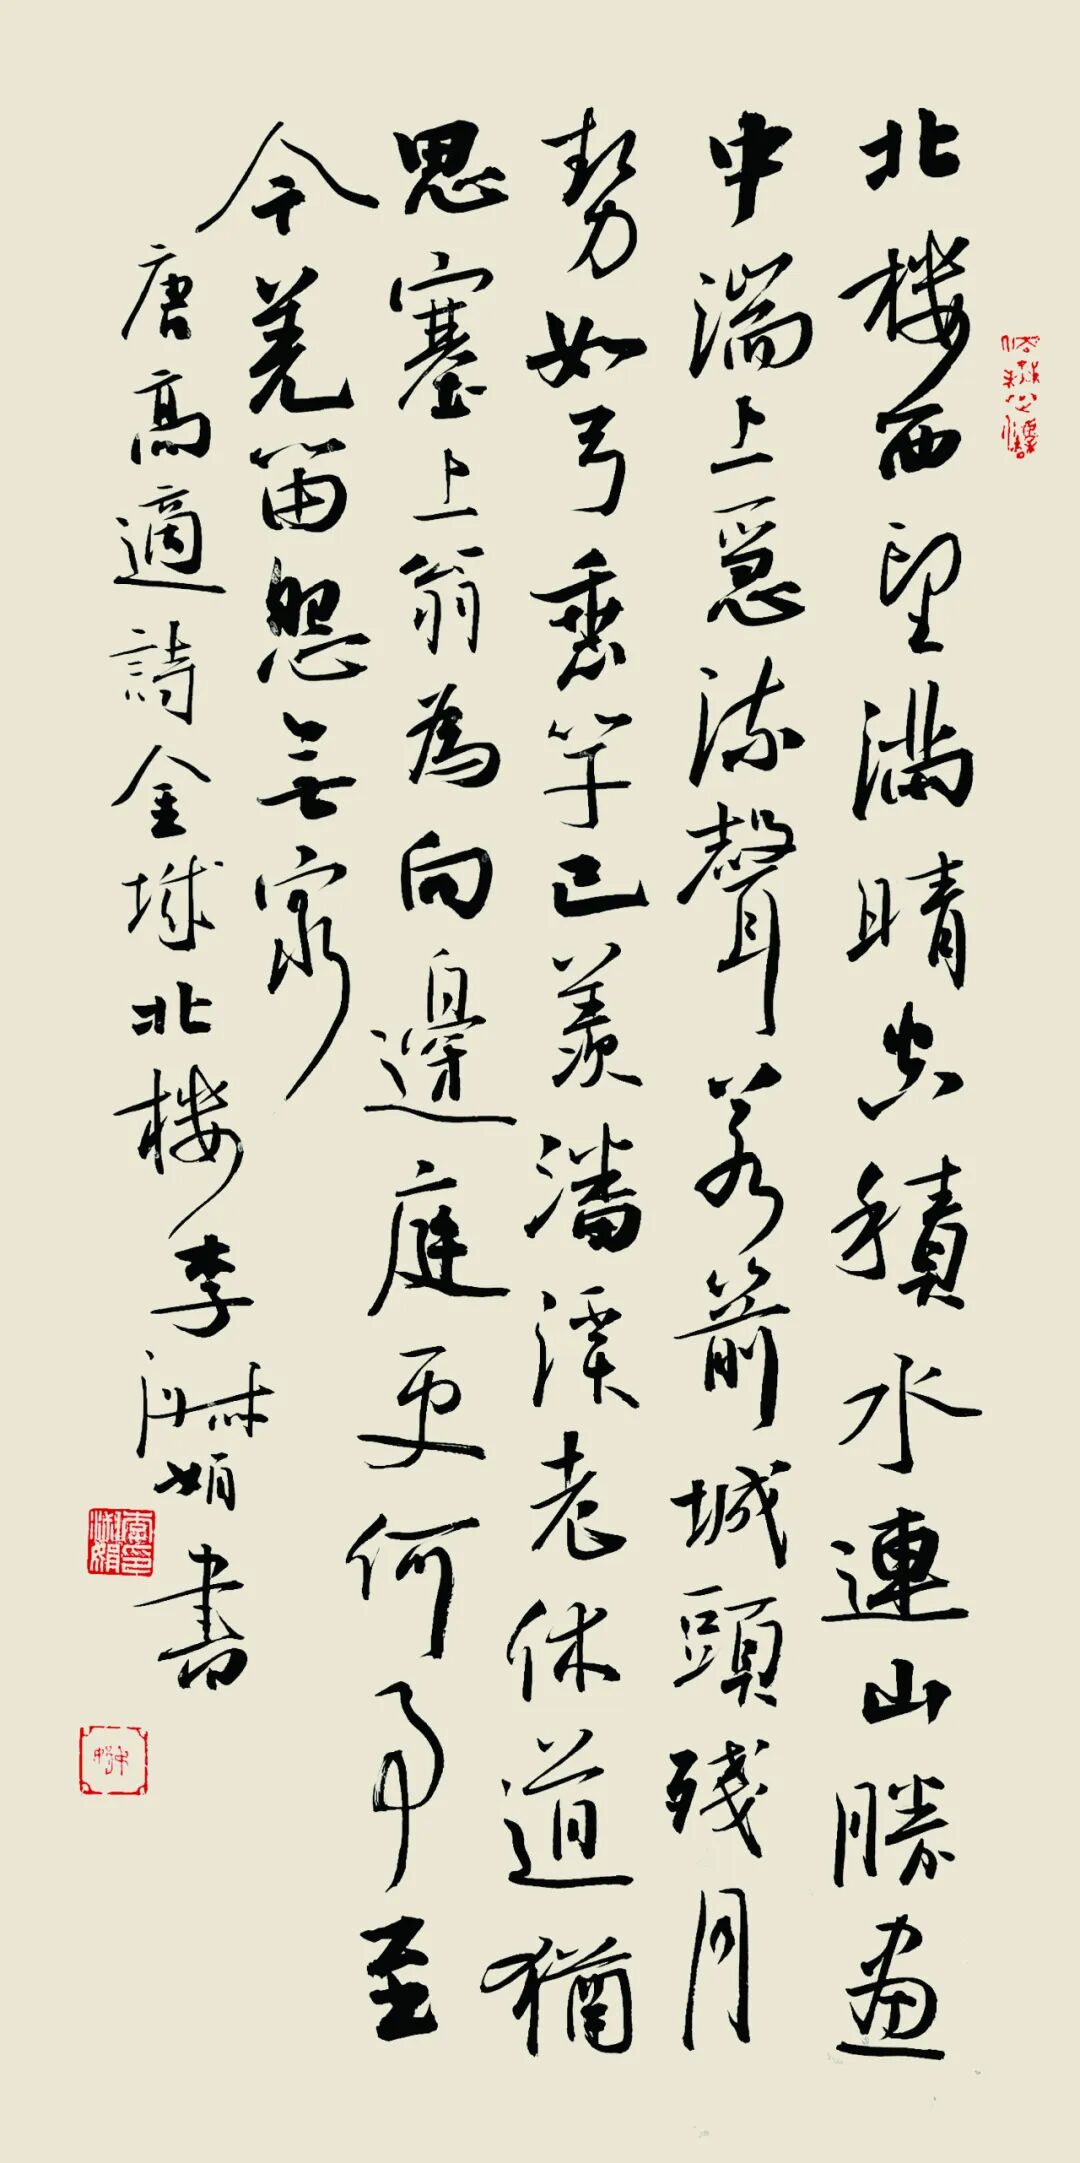 北楼西望滿晴空積水連山勝畫
中湍上急流聲若箭城頭殘月
勢如弓垂竿已羨潘溪老休道猶
思塞上翁為向邊庭更何事至
今羌笛怨無窮
唐高適詩金城北楼李淑娟書